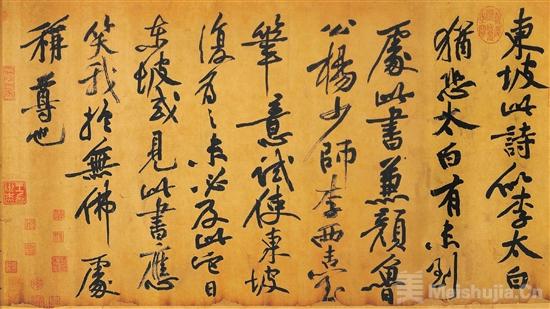 東坡此詩似李太白
猶恐太白有未到
處此書兼顏魯
公楊少師李西臺
筆意試使東坡
復為之未必及此它日
東坡或見此書應
笑我於無佛處
稱尊也
美 Meishujia.Cn